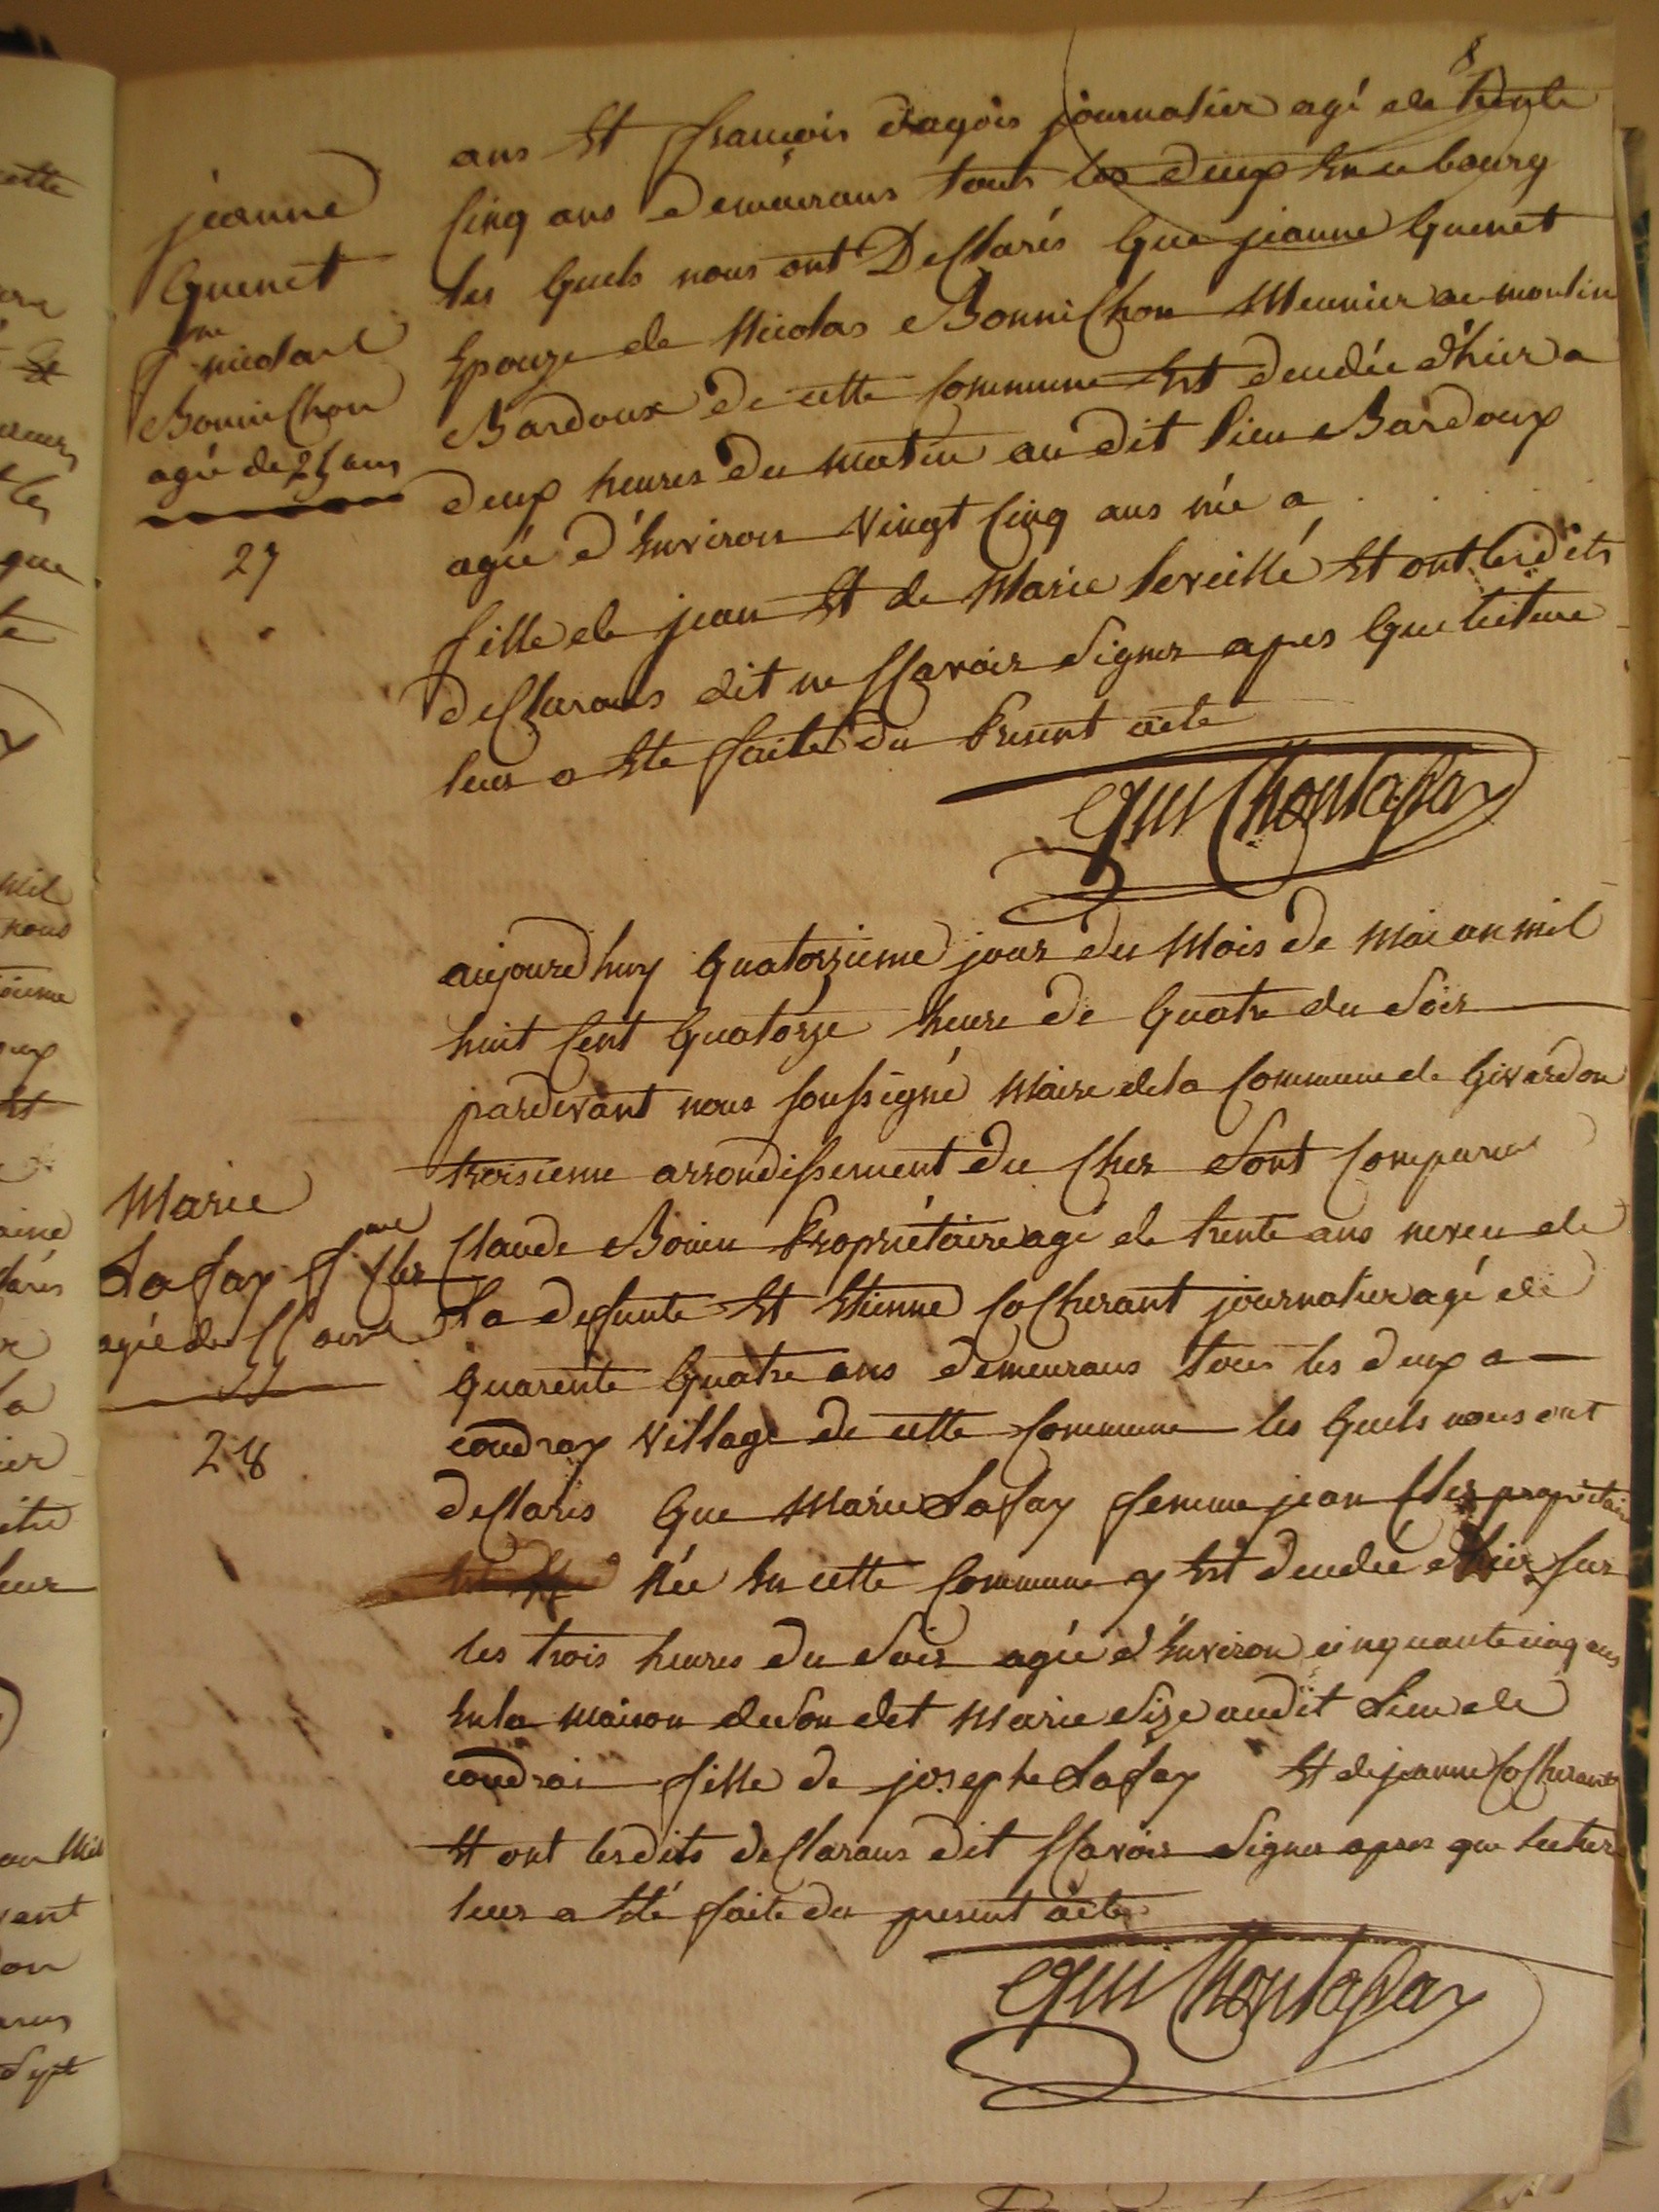 8
ans Et françois dagois journalier agé de trente
Cinq ans demeurans tous les deux En ce bourg
les quels nous ont Desclarés Que jeanne Guenet
Epouze de Nicolas Bonnichon Meunier au moulin
Bardoux de cette Commune Est decedée d'hier a
deux heures du matin au dit lieu Bardoux
agée d'Environ Vingt Cinq ans née a . . . . .
fille de jean Et de Marie leveillé Et ont lesdits
desclarans dit ne sçavoir Signer apres Que lecture
leur a Ete faite du Present acte
jeanne
Guenet
fme nicolas
Bonnichon
agée de 25 ans
27
aujourd'huy Quatorzieme jour du Mois de Mai an mil
huit Cent Quatorze heure de Quatre du Soir
pardevant nous soussigné Maire de la Commune de Givardon
troisieme arrondissement du Cher Sont Comparus
Claude Bonin Propriétaire agé de trente ans neveu de
La defunte Et Etienne Cocherant journalier agé de
Quarente Quatre ans demeurans tous les deux a
coudray Village de cette Commune les Quels nous ont
desclarés Que Marie Lafay femme jean Cler propriétaire
née En cette Commune y Est decedée d'hier sur
les trois heures du Soir agée d'Environ cinquante cinq ans
En la maison de Son dit Marie Size au dit Lieu de
coudrai fille de josephe Lafay Et de jeanne Cocherant
Et ont lesdits desclarans dit sçavoir Signer apres que lecture
leur a Eté faite du present acte
Marie
Lafay fme Cler
agée de 55 ans
55
28